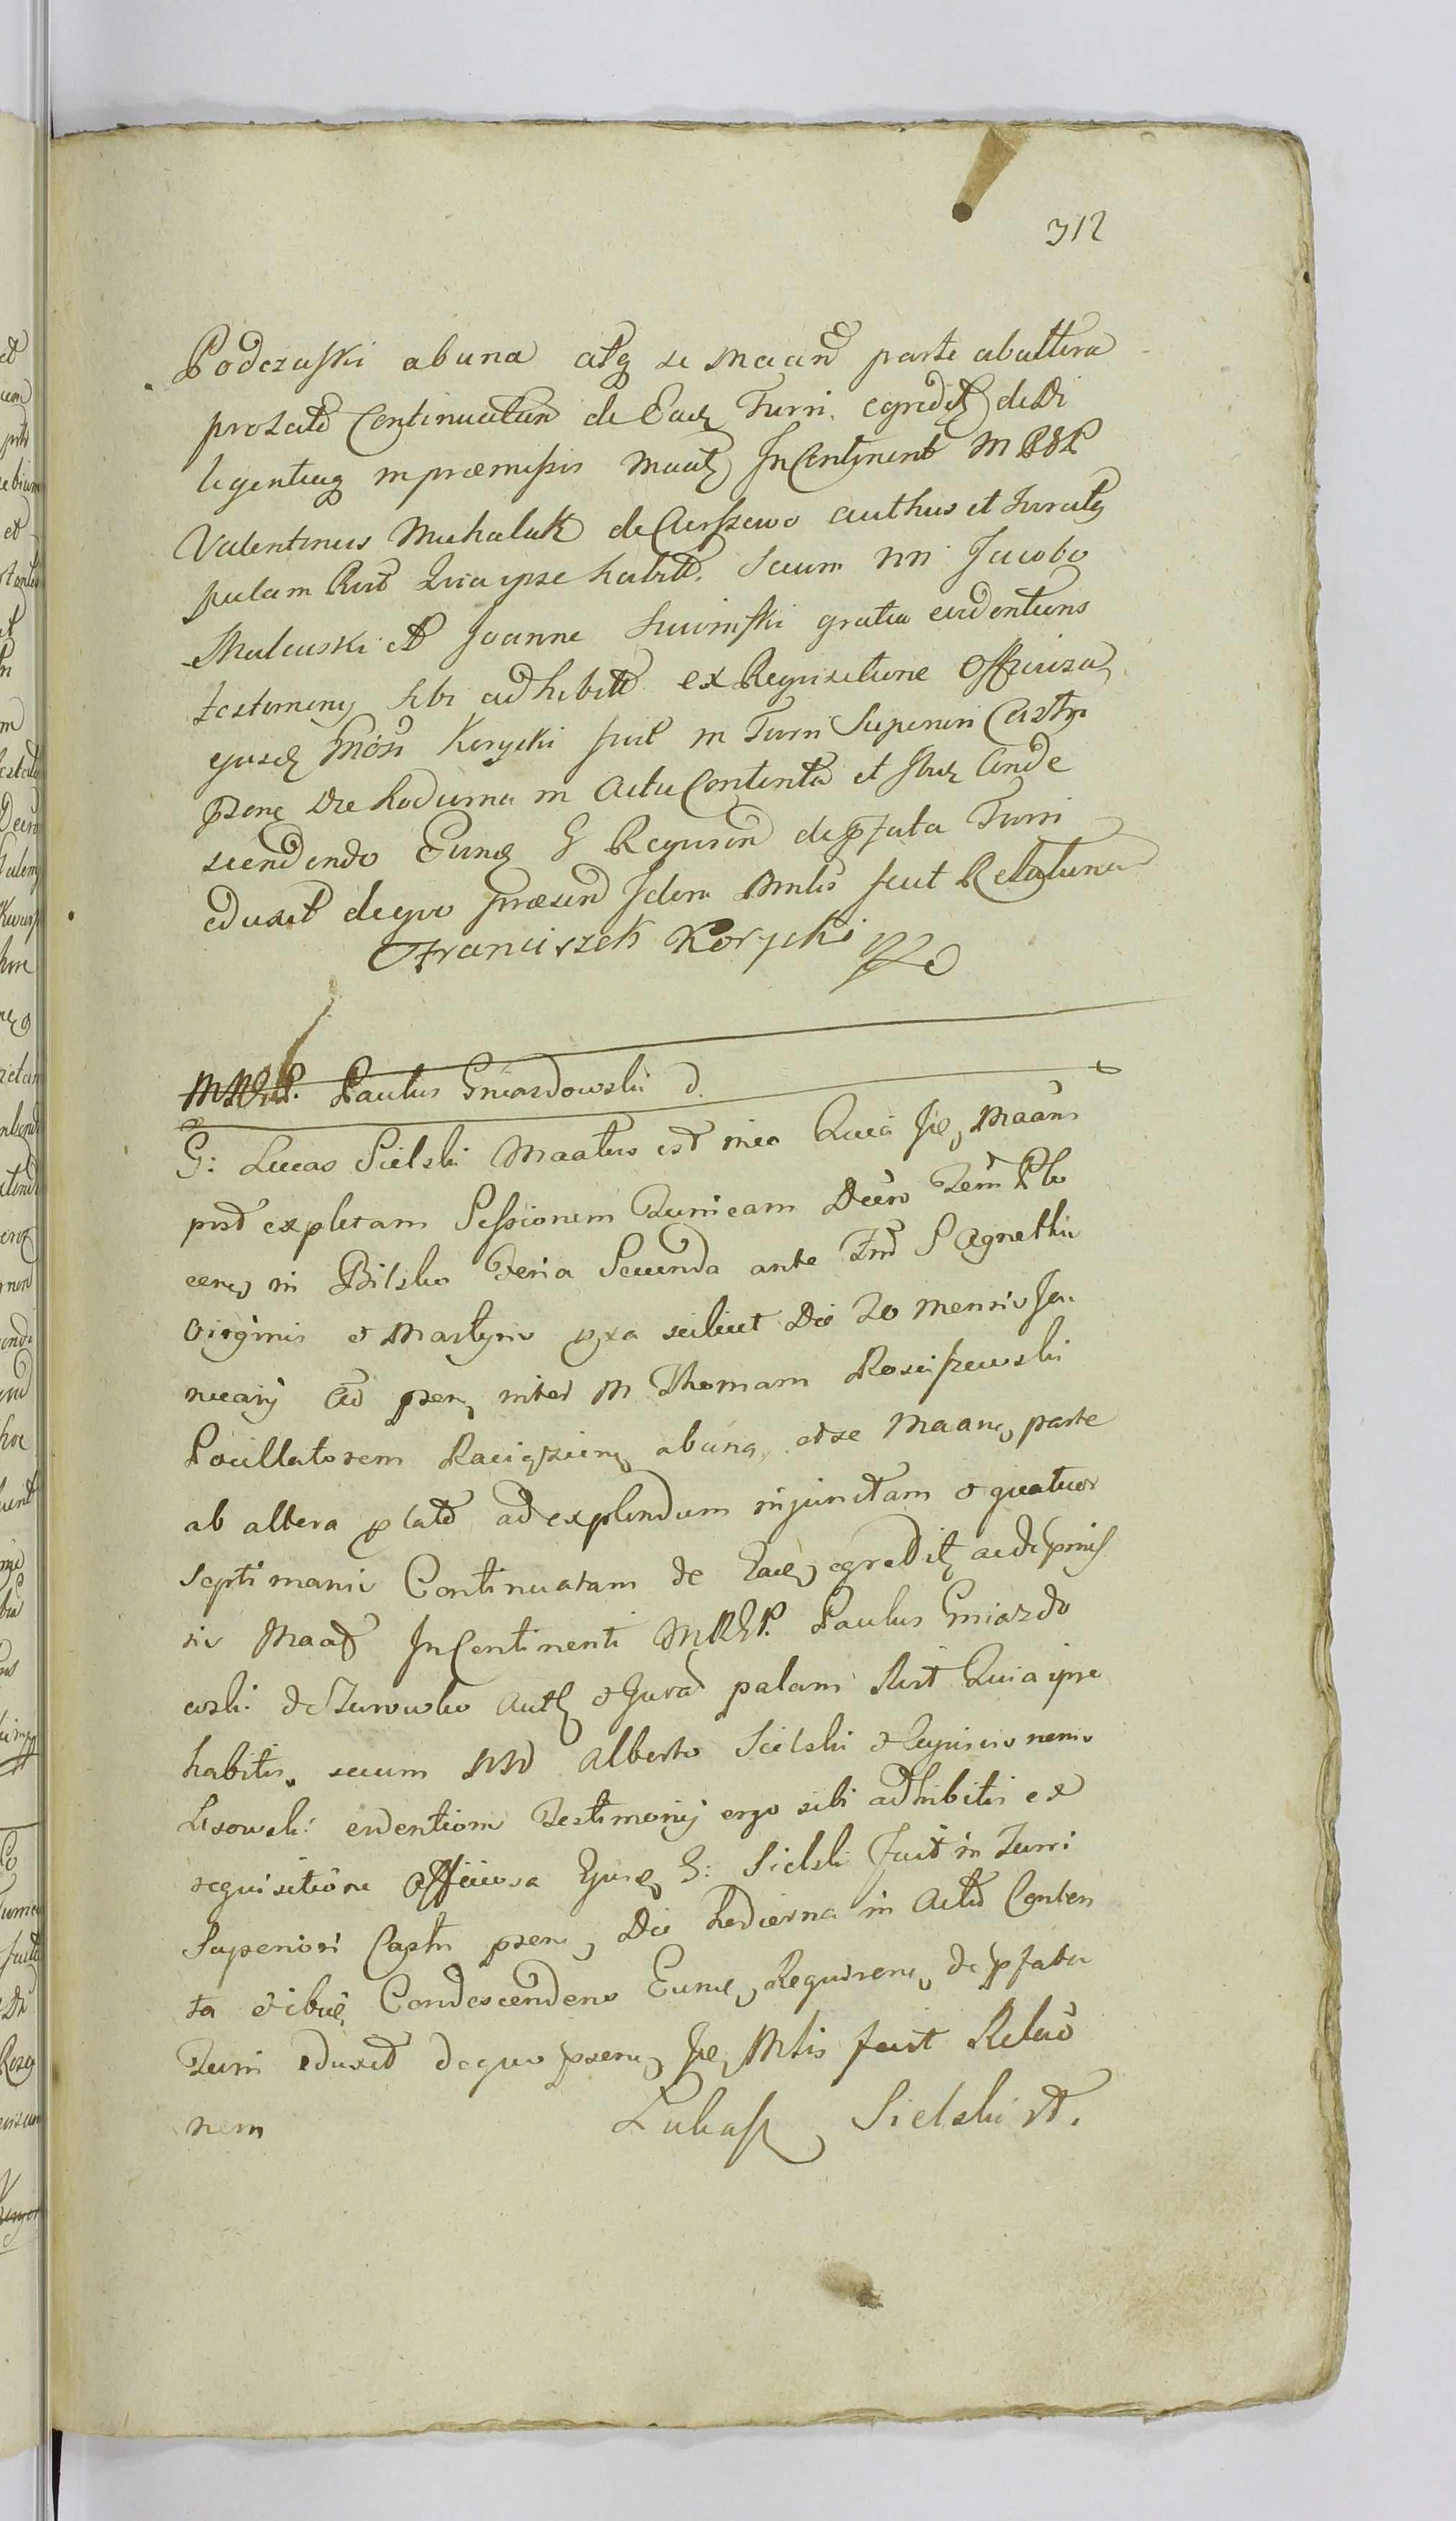 312
Podczaski ab una atq se Maan parte ab altera
pro late Continuatam de Eadz Turri egredit de Di
ligentiaq in præmissis Maatz In Continent M R G P
Valentinus Michalak de authus et Juratq
palam Rvit Quia ipse habitt. Secum NN Jacobo
et Joanne gratia evidentioris
testimonij sibi adhibitt ex Requisitione Officiosa
ejusdz Korycki fuit in Turri Superiori Castri
psene Die hodierna in Actu Contenta et Ibidz Conde
scendendo Eundz G Requiren de pfata Turri
eduxit de quo præsen Idem Mnlis fecit Relationem
Franciszek Korycki
M R G P. Paulus Gniazdowski d.
G: Lucas Sielski Maatus est mco Quia Ile Maans
post expletam Sessionem Turricam Decro Trm Plo
cen in Bilsko Feria Secunda ante Fm S Agnethis
Virginis et Martyris pxa scilicet Die 20 mensis Ja
nuarij Ao psen inter M Thomam Rosciszewski
Pocillatorem Raciązien ab una et se Maan parte
ab altera p late ad explendum injunctam et quatuor
septimanis Continuatam de Eadz egredit ac de pmis
sis Maat In Continenti M R G P. Paulus Gniazdo
wski de Zurowko Auth et Jurat palam Rvit Quia ipse
habitis secum NN Alberto Sielski et
Lisowski evidentioris Testimonij ergo sibi adhibitis ex
requisitione Officiosa Ejusdz G: Sielski fuit in Turri
Superiori Castri psen Die hodierna in Actu Conten
ta et ibidz Condescendens Eundz Requirens de pfata
Turri eduxit de quo psens Ile Mlis fecit Relao
nem Łukasz Sielski